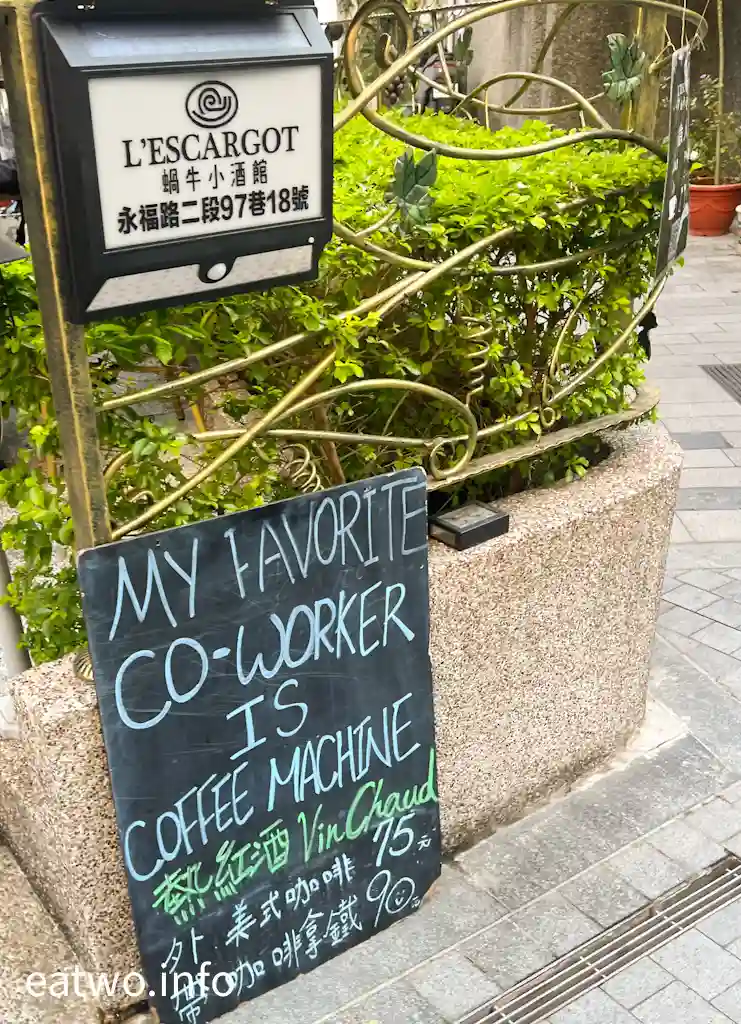 L'ESCARGOT
蝸牛小酒館
永福路二段97巷18號
MY FAVORITE
CO-WORKER
IS
COFFEE MACHINE
熱紅酒 Vin Chaud
外帶
美式咖啡 75元
咖啡拿鐵 90
eatwo.info